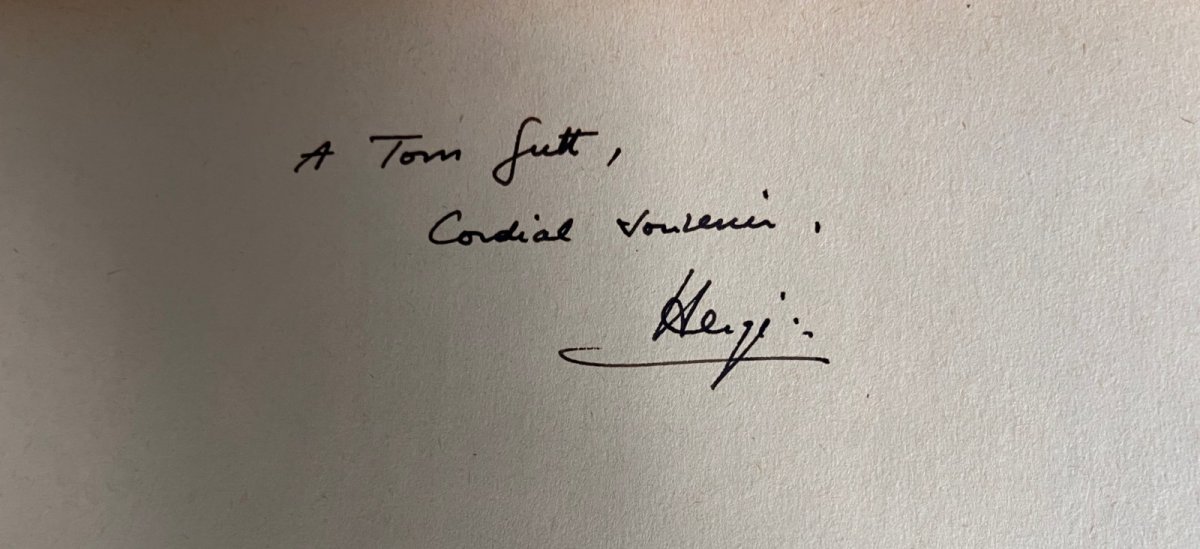 A Tom Gutt,
Cordial souvenir.
Hergé.